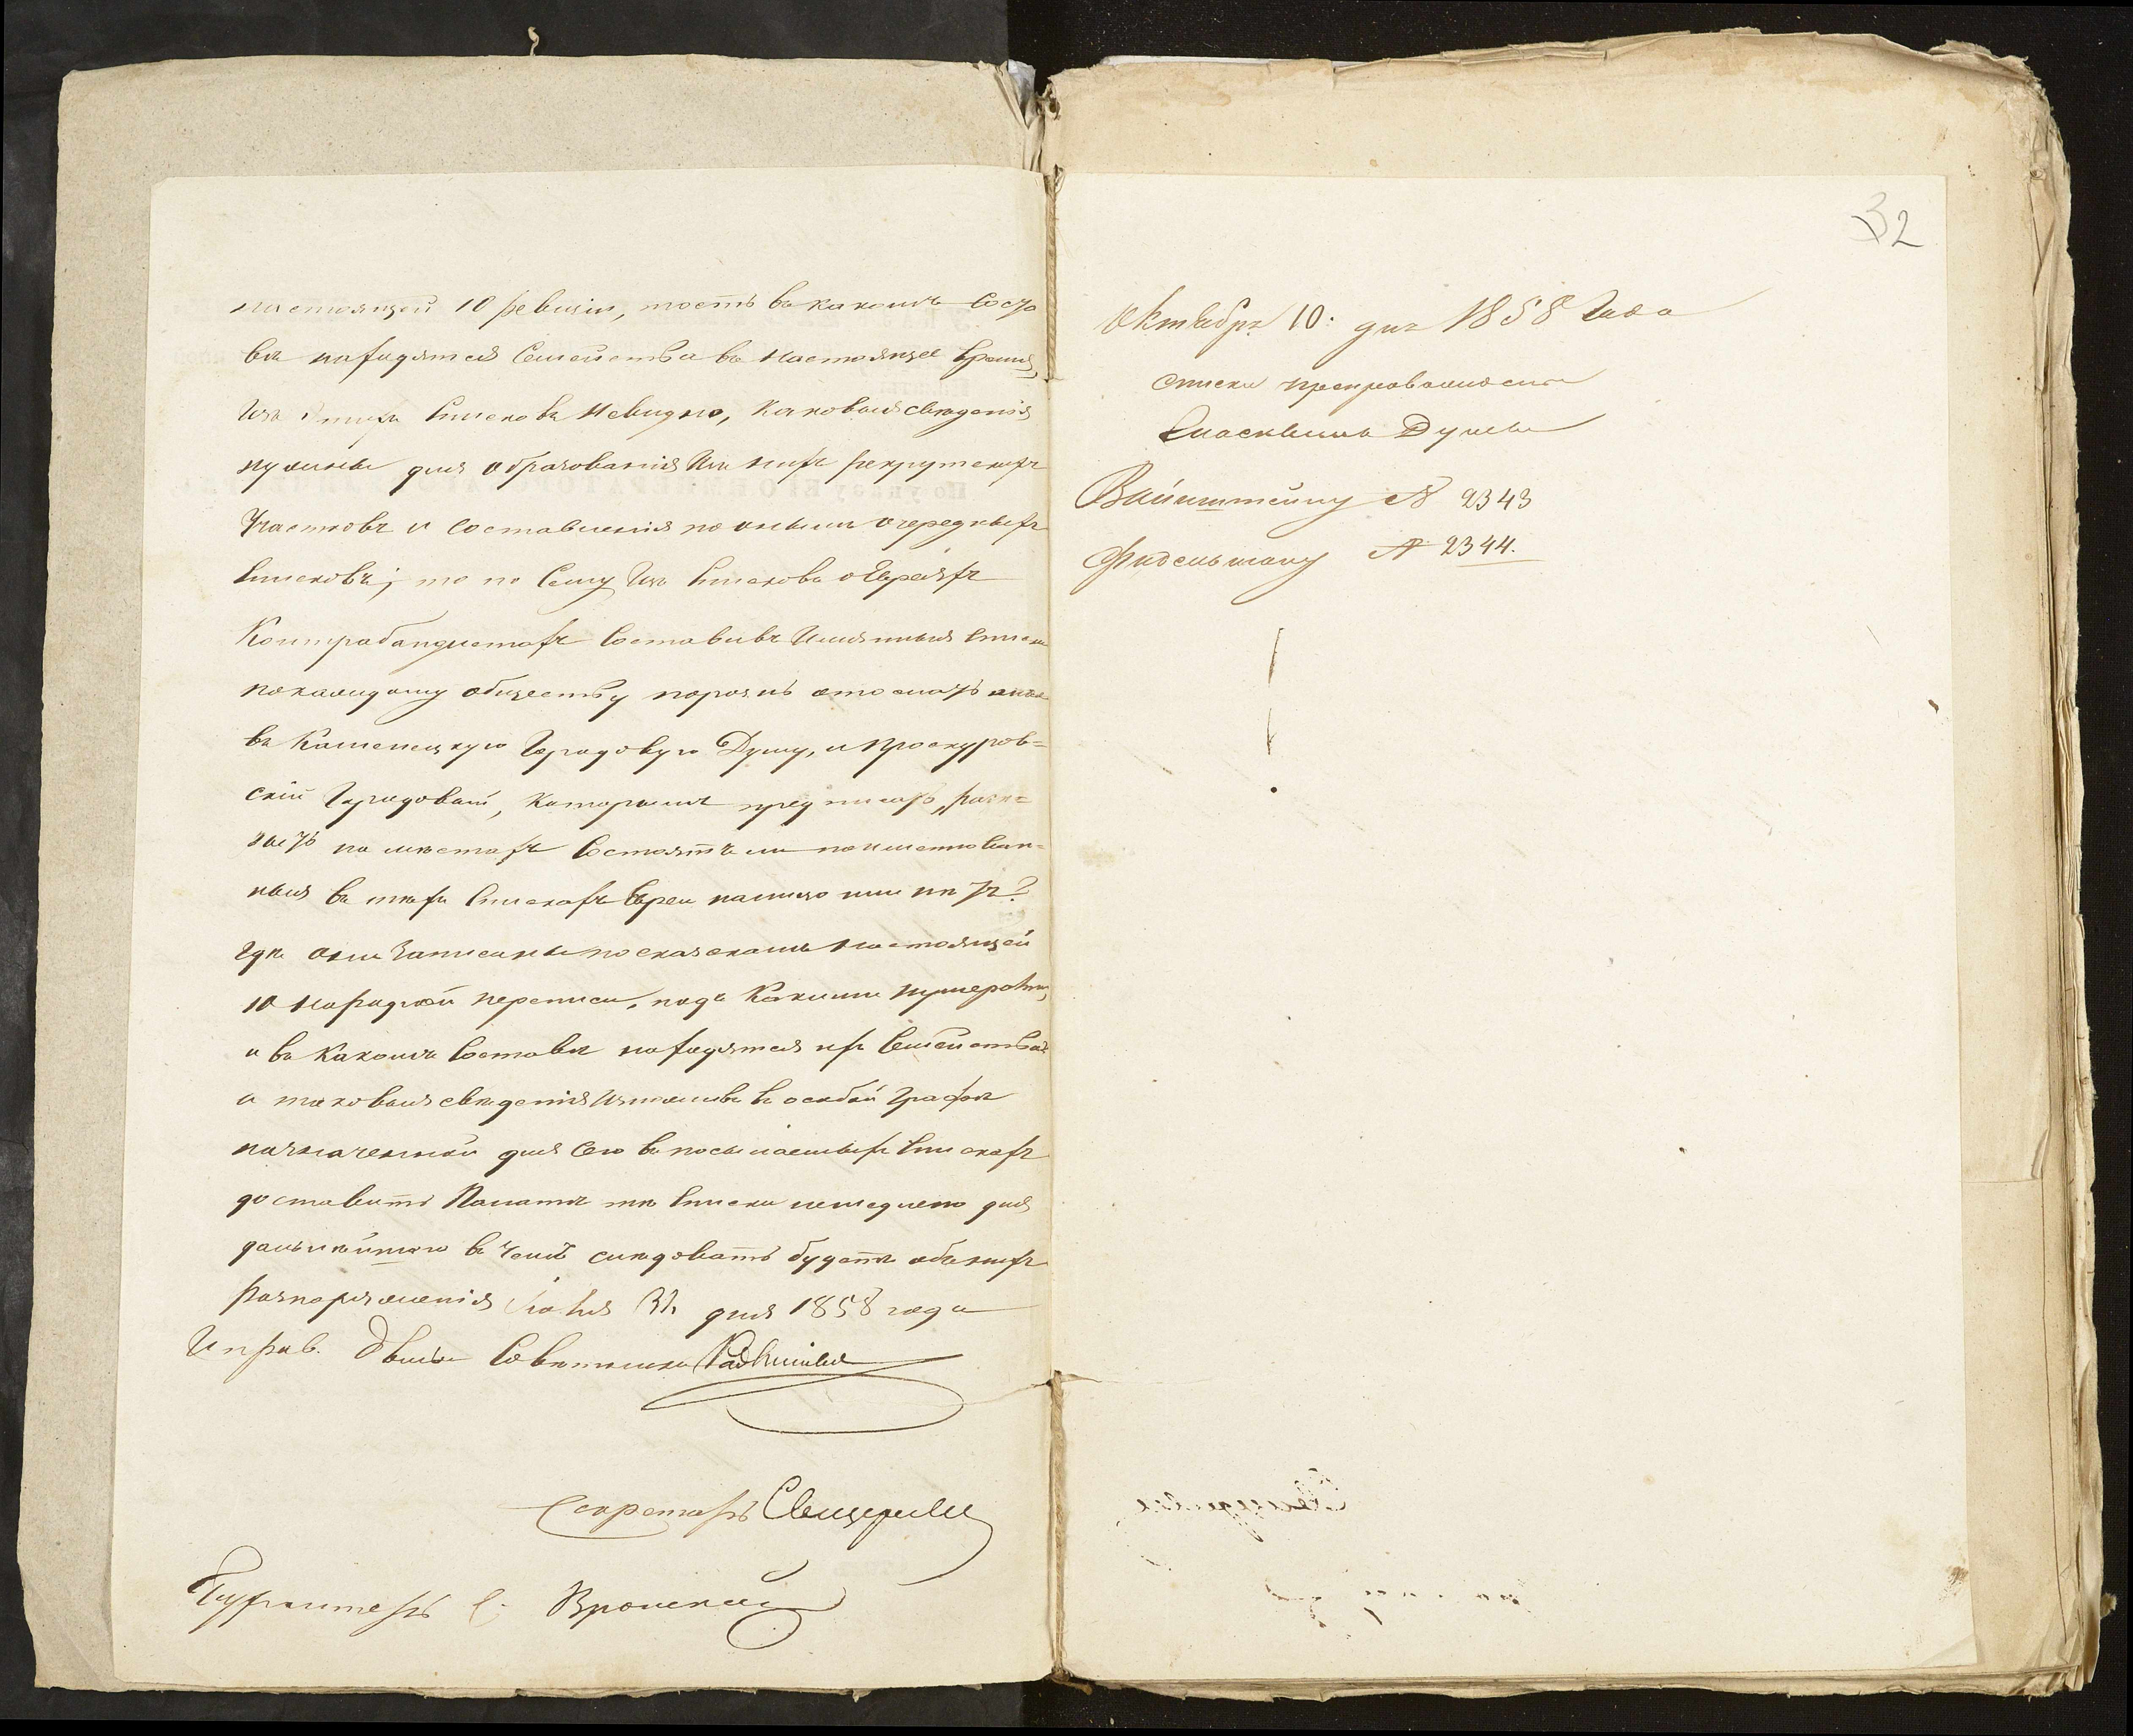 настоящей 10 ревизіи, тоесть въ какомъ соста
вѣ находятся Семейства въ настоящее время,
изъ этихъ списковъ невидно, каковыя свѣденія
нужны для образованія изъ нихъ рекрутскихъ
участковъ и составленія по онымъ очередныхъ
списковъ; то по сему изъ списковъ о Евреяхъ
Контрабандистахъ составивъ имянныя списки
покаждому обществу порознь отослать
въ Каменецкую Градовую Думу, и Проскуров=
скій Городовый, которымъ предписать, разъ=
по мѣстахъ состоятъ ли поименован=
ныя въ тѣхъ спискахъ Евреи налицо или нѣтъ?
гдѣ они записаны по сказкамъ настоящей
10 народной переписи, подъ какими нумерами,
и въ какомъ составѣ находятся ихъ Семейства
и таковыя свѣденія въ особой графѣ
назначенной для сего въ посылаемыхъ спискахъ
доставить Палатѣ тѣ списки немедлено для
дальнѣйшаго въ чемъ слѣдовать будетъ объ нихъ
распоряженія Іюля 31 дня 1858 года
Исправ. Совѣтника
Секретарь
Бухгалтеръ Вронский
32
Октября 10: дня 1858 Года
списки препровождены
Думы
Вайнштейну № 2343
Фидельману № 2344.